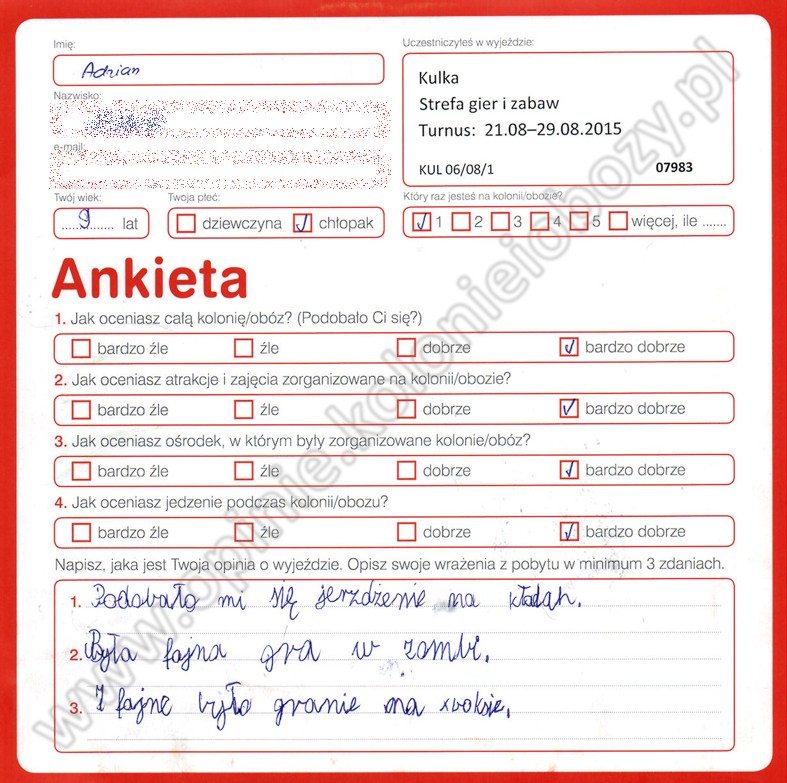 Imię:
Adrian
Nazwisko:
e-mail:
Twój wiek:
9 lat
Twoja płeć:
dziewczyna chłopak
Uczestniczyłeś w wyjeździe:
Kulka
Strefa gier i zabaw
Turnus: 21.08–29.08.2015
KUL 06/08/1 07983
Który raz jesteś na kolonii/obozie?
1 2 3 4 5 więcej, ile .......
Ankieta
1. Jak oceniasz całą kolonię/obóz? (Podobało Ci się?)
bardzo źle źle dobrze bardzo dobrze
2. Jak oceniasz atrakcje i zajęcia zorganizowane na kolonii/obozie?
bardzo źle źle dobrze bardzo dobrze
3. Jak oceniasz ośrodek, w którym były zorganizowane kolonie/obóz?
bardzo źle źle dobrze bardzo dobrze
4. Jak oceniasz jedzenie podczas kolonii/obozu?
bardzo źle źle dobrze bardzo dobrze
Napisz, jaka jest Twoja opinia o wyjeździe. Opisz swoje wrażenia z pobytu w minimum 3 zdaniach.
1. Podobało mi się jerzdżenie na
2. Była fajna gra w zombi.
3. I fajne było granie na xboksie.
www.opinie.kolonieiobozy.pl